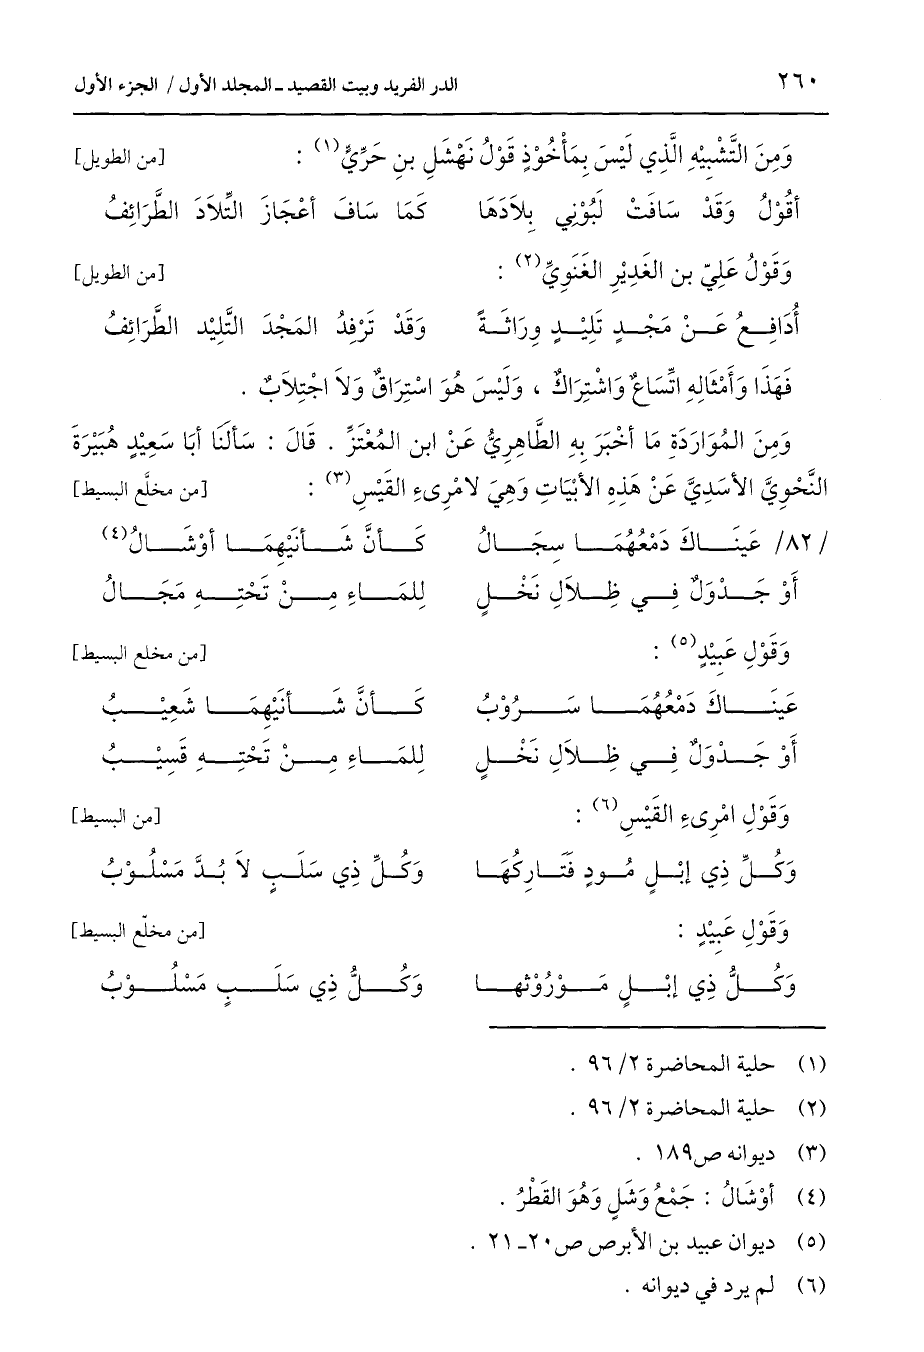 ٢٦٠ الدر الفريد وبيت القصيد ـ المجلد الأول / الجزء الأول
وَمِنَ التَّشْبِيْهِ الَّذِي لَيْسَ بِمَأْخُوْذٍ قَوْلُ نَهْشَلِ بنِ حَرِّيٍّ(١) : [من الطويل]
أقُوْلُ وَقَدْ سَافَتْ لَبُوْنِي بِلاَدَهَا كَمَا سَافَ أعْجَازَ التِّلاَدَ الطَّرَائِفُ
وَقَوْلُ عَلِيّ بن الغَدِيْرِ الغَنَوِيِّ(٢) : [من الطويل]
أُدَافِعُ عَنْ مَجْدٍ تَلِيْدٍ وِرَاثَةً وَقَدْ تَرْفِدُ المَجْدَ التَّلِيْدَ الطَّرَائِفُ
فَهَذَا وَأَمْثَالِهِ اتِّسَاعٌ وَاشْتِرَاكٌ ، وَلَيْسَ هُوَ اسْتِرَاقٌ وَلاَ اجْتِلاَبٌ .
وَمِنَ المُوَارَدَةِ مَا أخْبَرَ بِهِ الطَّاهِرِيُّ عَنْ ابن المُعْتَزِّ . قَالَ : سَألْنَا أبَا سَعِيْدٍ هُبَيْرَةَ
النَّحْوِيَّ الأسَدِيَّ عَنْ هَذِهِ الأبْيَاتِ وَهِيَ لامْرِىءِ القَيْسِ(٣) : [من مخلَّع البسيط]
/ ٨٢/ عَينَاكَ دَمْعُهُمَا سِجَالُ كَأنَّ شَأنَيْهِمَا أوْشَالُ(٤)
أَوْ جَدْوَلٌ فِي ظِلاَلِ نَخْلٍ لِلمَاءِ مِنْ تَحْتِهِ مَجَالُ
وَقَوْلِ عَبِيْدٍ(٥) : [من مخلع البسيط]
عَينَاكَ دَمْعُهُمَا سَرُوْبُ كَأنَّ شَأنَيْهِمَا شَعِيْبُ
أَوْ جَدْوَلٌ فِي ظِلاَلِ نَخْلٍ لِلمَاءِ مِنْ تَحْتِهِ قَسِيْبُ
وَقَوْلِ امْرِىءِ القَيْسِ(٦) : [من البسيط]
وَكُلِّ ذِي إبْلٍ مُودٍ فَتَارِكُهَا وَكُلِّ ذِي سَلَبٍ لاَ بُدَّ مَسْلُوْبُ
وَقَوْلِ عَبِيْدٍ : [من مخلّع البسيط]
وَكُلُّ ذِي إبْلٍ مَوْرُوْثهَا وَكُلُّ ذِي سَلَبٍ مَسْلُوْبُ
(١) حلية المحاضرة ٢/ ٩٦ .
(٢) حلية المحاضرة ٢/ ٩٦ .
(٣) ديوانه ص١٨٩ .
(٤) أوْشَالُ : جَمْعُ وَشَلٍ وَهُوَ القَطْرُ .
(٥) ديوان عبيد بن الأبرص ص٢٠ـ ٢١ .
(٦) لم يرد في ديوانه .